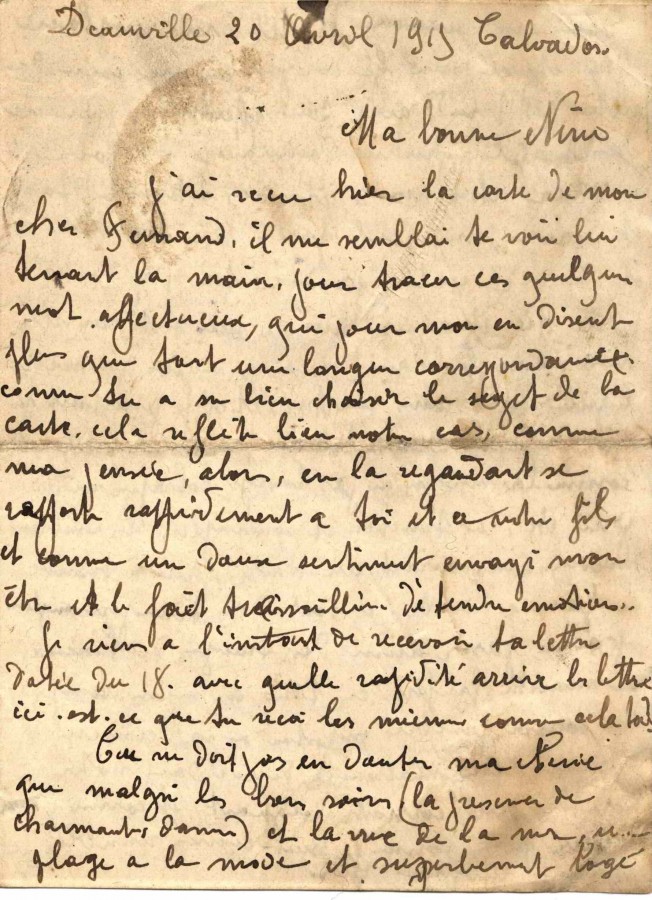 Deauville 20 Avril 1915 Calvados.
Ma bonne Nine
J'ai recu hier la carte de mon
cher Fernand, il me semblai te voir lui
tenant la main, pour tracer ces quelques
mot affectueux, qui pour moi en disent
plus que tout une longue correspondance.
comme tu a su bien choisir le sujet de la
carte, cela reflète bien notre cas, comme
ma pensée, alors, en la regardant se
rapporte rappidement a toi et a notre fils
et comme un doux sentiment envayi mon
être et le fait tressaillir de tendre emotions..
Je viens a l'instant de recevoir ta lettre
datée du 18. avec quelle rapidité arrive les lettre
ici. est. ce que tu recoi les mienne comme cela
Tu ne doit pas en douter ma Nine
que malgré les bons soins (la presence de
charmantes dames) et la vue de la mer,
plage a la mode et superbement logé